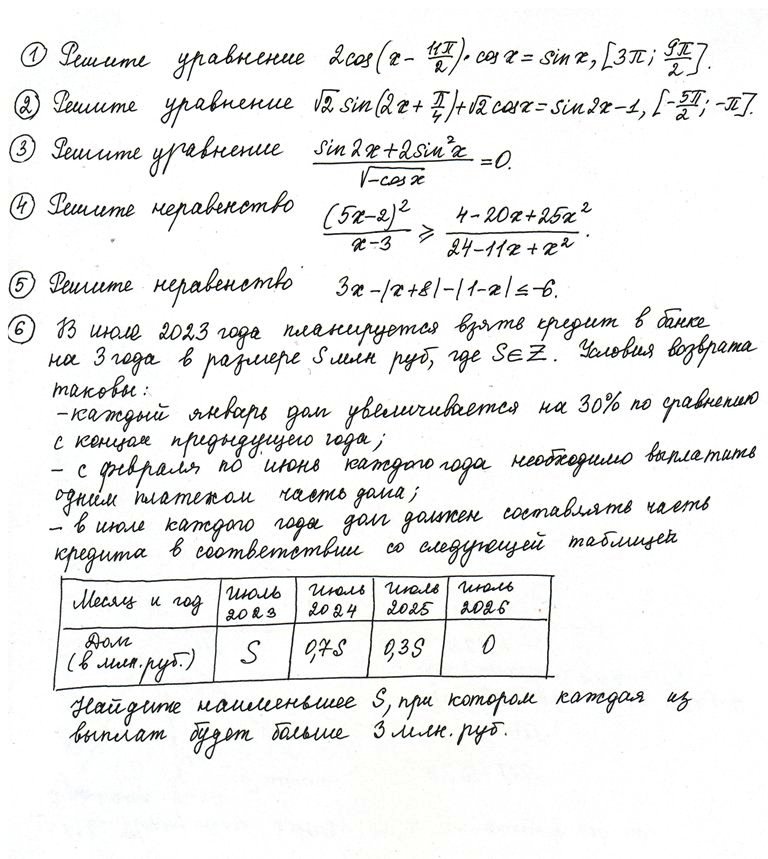 ① Решите уравнение 2cos(x - 11π/2)·cosx = sinx, [3π; 9π/2].
② Решите уравнение √2 sin(2x + π/4) + √2 cosx = sin2x - 1, [-5π/2; -π].
③ Решите уравнение (sin2x + 2sin²x)/√(-cosx) = 0.
④ Решите неравенство (5x-2)²/(x-3) ⩾ (4-20x+25x²)/(24-11x+x²).
⑤ Решите неравенство 3x - |x+8| - |1-x| ≤ -6.
⑥ В июле 2023 года планируется взять кредит в банке
на 3 года в размере S млн руб, где S∈Z. Условия возврата
таковы:
- каждый январь долг увеличивается на 30% по сравнению
с концом предыдущего года;
- с февраля по июнь каждого года необходимо выплатить
одним платежом часть долга;
- в июле каждого года долг должен составлять часть
кредита в соответствии со следующей таблицей
Месяц и год | июль 2023 | июль 2024 | июль 2025 | июль 2026
Долг (в млн. руб.) | S | 0,7S | 0,3S | 0
Найдите наименьшее S, при котором каждая из
выплат будет больше 3 млн. руб.